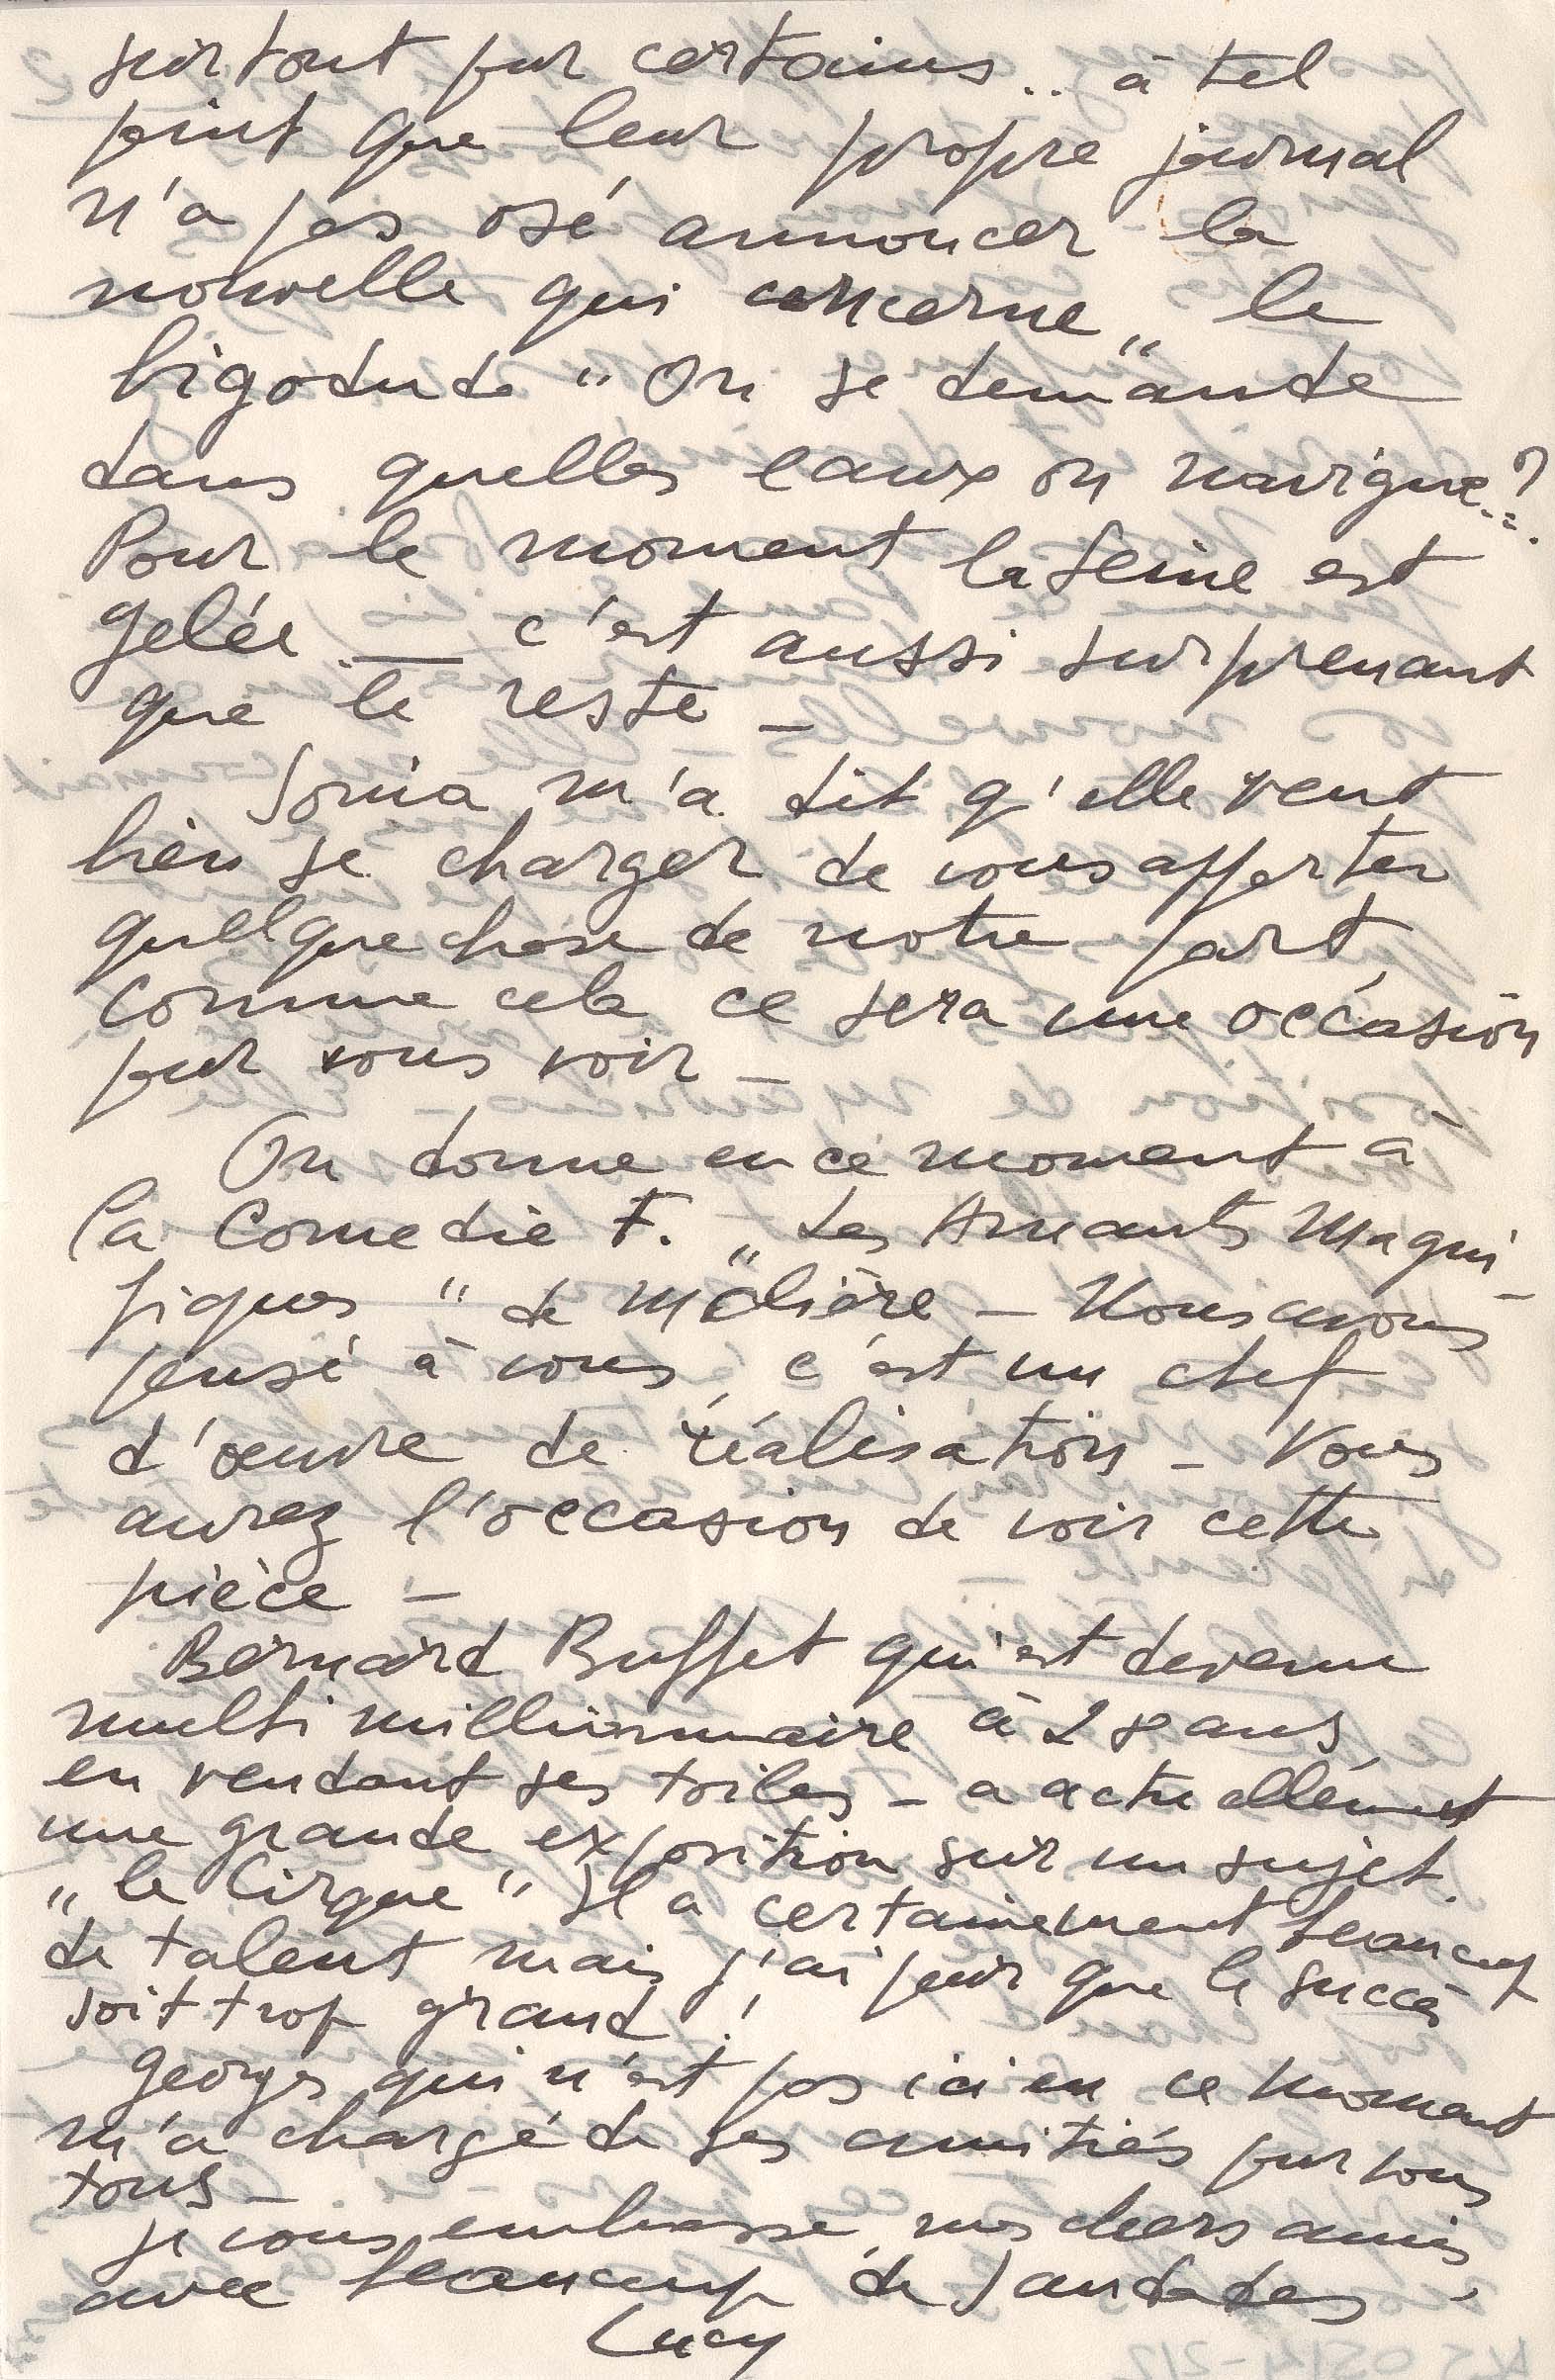 surtout pour certains.. à tel
point que leur propre journal
n'a pas osé annoncer la
nouvelle qui concerne „ le
bigodudo " On se demande
dans quelles eaux on navigue..?
Pour le moment la Seine est
gelée — c'est aussi surprenant
que le reste —
Sonia m'a dit q'elle veut
bien se charger de vous apporter
quelque chose de notre part
comme cela ce sera une occasion
pour vous voir —
On donne en ce moment à
la Comedie F. „ Les Amants Magni-
fiques " de Molière — Nous avons
pensé à vous, c'est un chef
d'œuvre de réalisation — Vous
aurez l'occasion de voir cette
pièce —
Bernard Buffet qui est devenu
multi millionnaire à 28 ans
en vendant ses toiles — a actuellement
une grande exposition sur un sujet
„ le Cirque " Il a certainement beaucoup
de talent mais j'ai peur que le succès
soit trop grand !
Georges qui n'est pas ici en ce moment
m'a chargé de ses amitiés pour vous
tous —
je vous embrasse, mes chers amis,
avec beaucoup de saudades,
Lucy